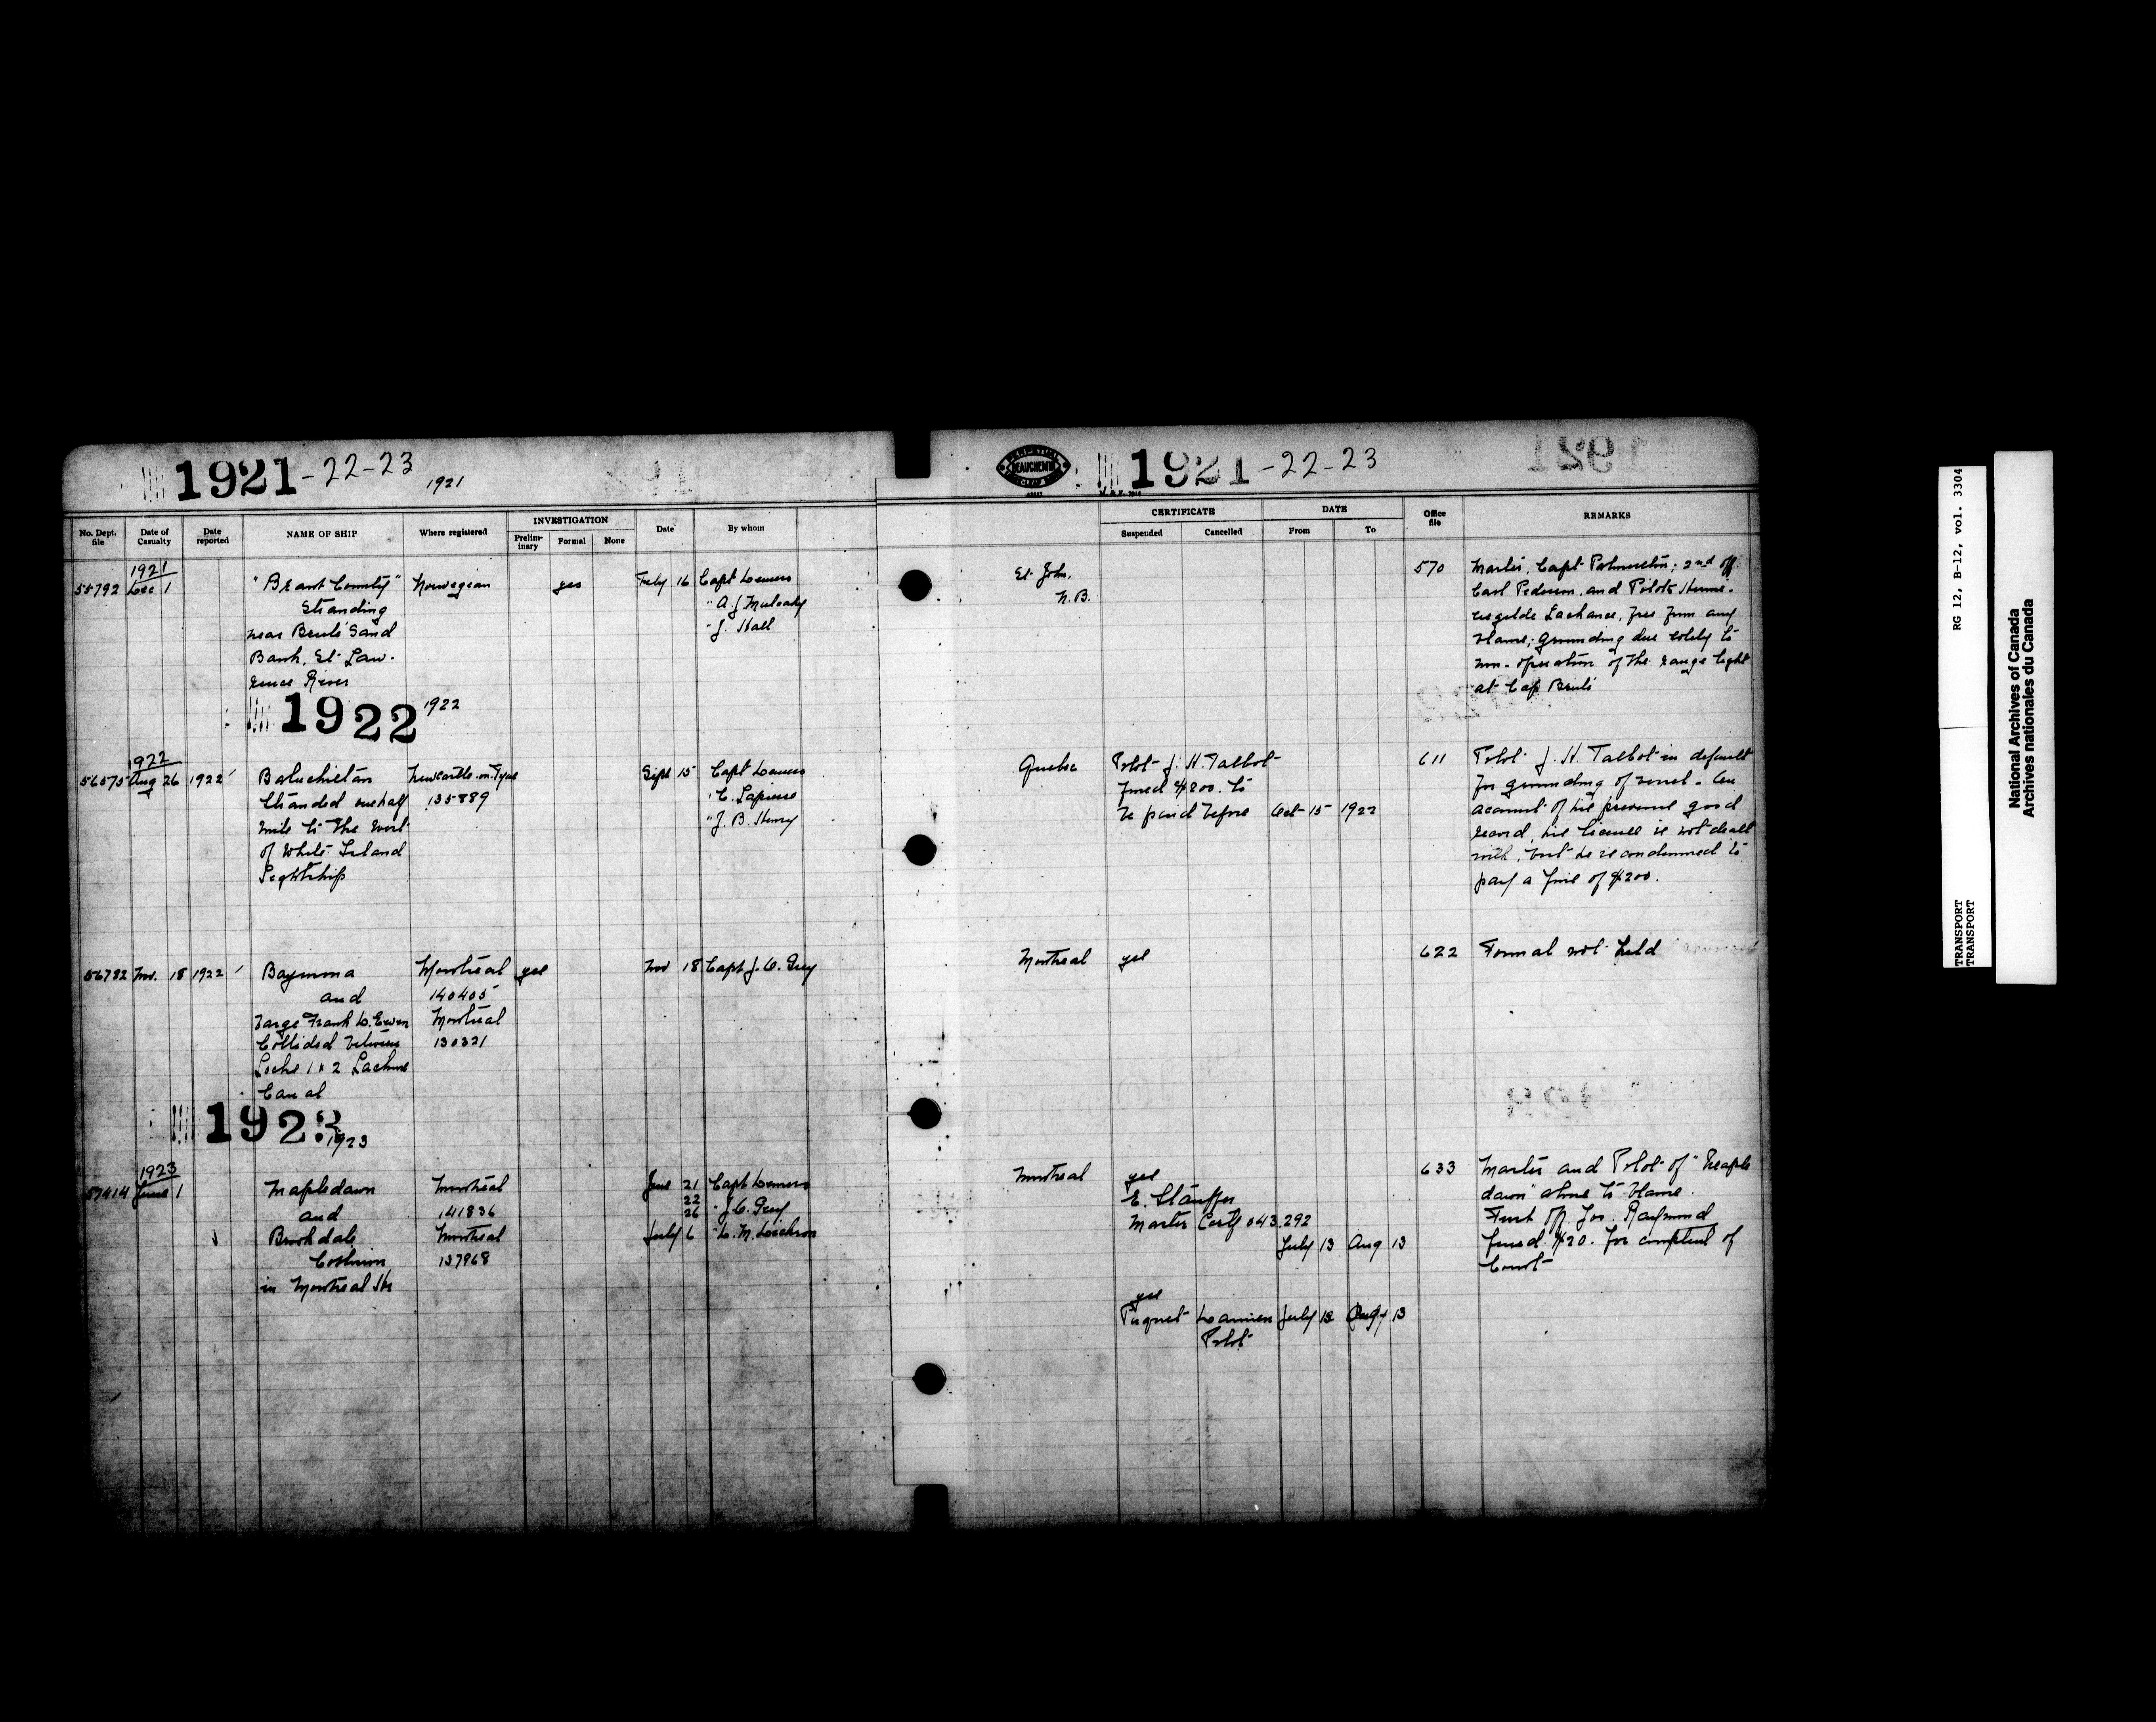 1921-22-23
1921
No. Dept. file
Date of Casualty
Date reported
NAME OF SHIP
Where registered
INVESTIGATION
Prelim-inary
Formal
None
Date
By whom
1921
55792 Dec 1
"Brant County"
Stranding
near Brulé Sand
Bank, St Law-
rence River
Norwegian
yes
Feby 16
Capt Demers
" A. J. Mulcahy
" J. Hall
1922
1922
1922
56575 Aug 26 1922
Baluchistan
Stranded one half
mile to the West
of White Island
Lightship
Newcastle-on-Tyne
135889
Sept 15
Capt Demers
" C. Lapierre
" J. B. Henry
56782 Nov. 18 1922
Baymona
and
barge Frank D. Ewen
Collided between
Locks 1 & 2 Lachine
Canal
Montreal
140405
Montreal
130321
yes
Nov 18
Capt J. O. Grey
1923
1923
1923
57414 June 1
Mapledawn
and
Brookdale
Collision
in Montreal Hr
Montreal
141836
Montreal
137968
June 21
22
26
July 6
Capt Demers
" J. O. Grey
PERPETUAL
BEAUCHEMIN
1921-22-23
1921
CERTIFICATE
Suspended
Cancelled
DATE
From
To
Office file
REMARKS
St John,
N.B.
570
Master, Capt ; 2nd off.
Carl Pedersen, and Pilot Herme-
negilde Lachance, free from any
blame; grounding due solely to
non-operation of the range light
at Cap Brulé
Quebec
Pilot J. H. Talbot
fined $200. to
be paid before Oct 15 1922
611
Pilot J. H. Talbot in default
for grounding of vessel. On
account of his previous good
record, his license is not dealt
with, but he is condemned to
pay a fine of $200.
Montreal
yes
622
Formal not held
Montreal
yes
E. Stauffer
Master Certf 043.292
July 13 Aug 13
yes
Paquet Damien July 13 Aug 13
Pilot
633
Master and Pilot of "Maple
dawn" alone to blame.
First Off. Jos. Raymond
fined $20. for contempt of
Court
RG 12, B-12, vol. 3304
TRANSPORT
TRANSPORT
National Archives of Canada
Archives nationales du Canada